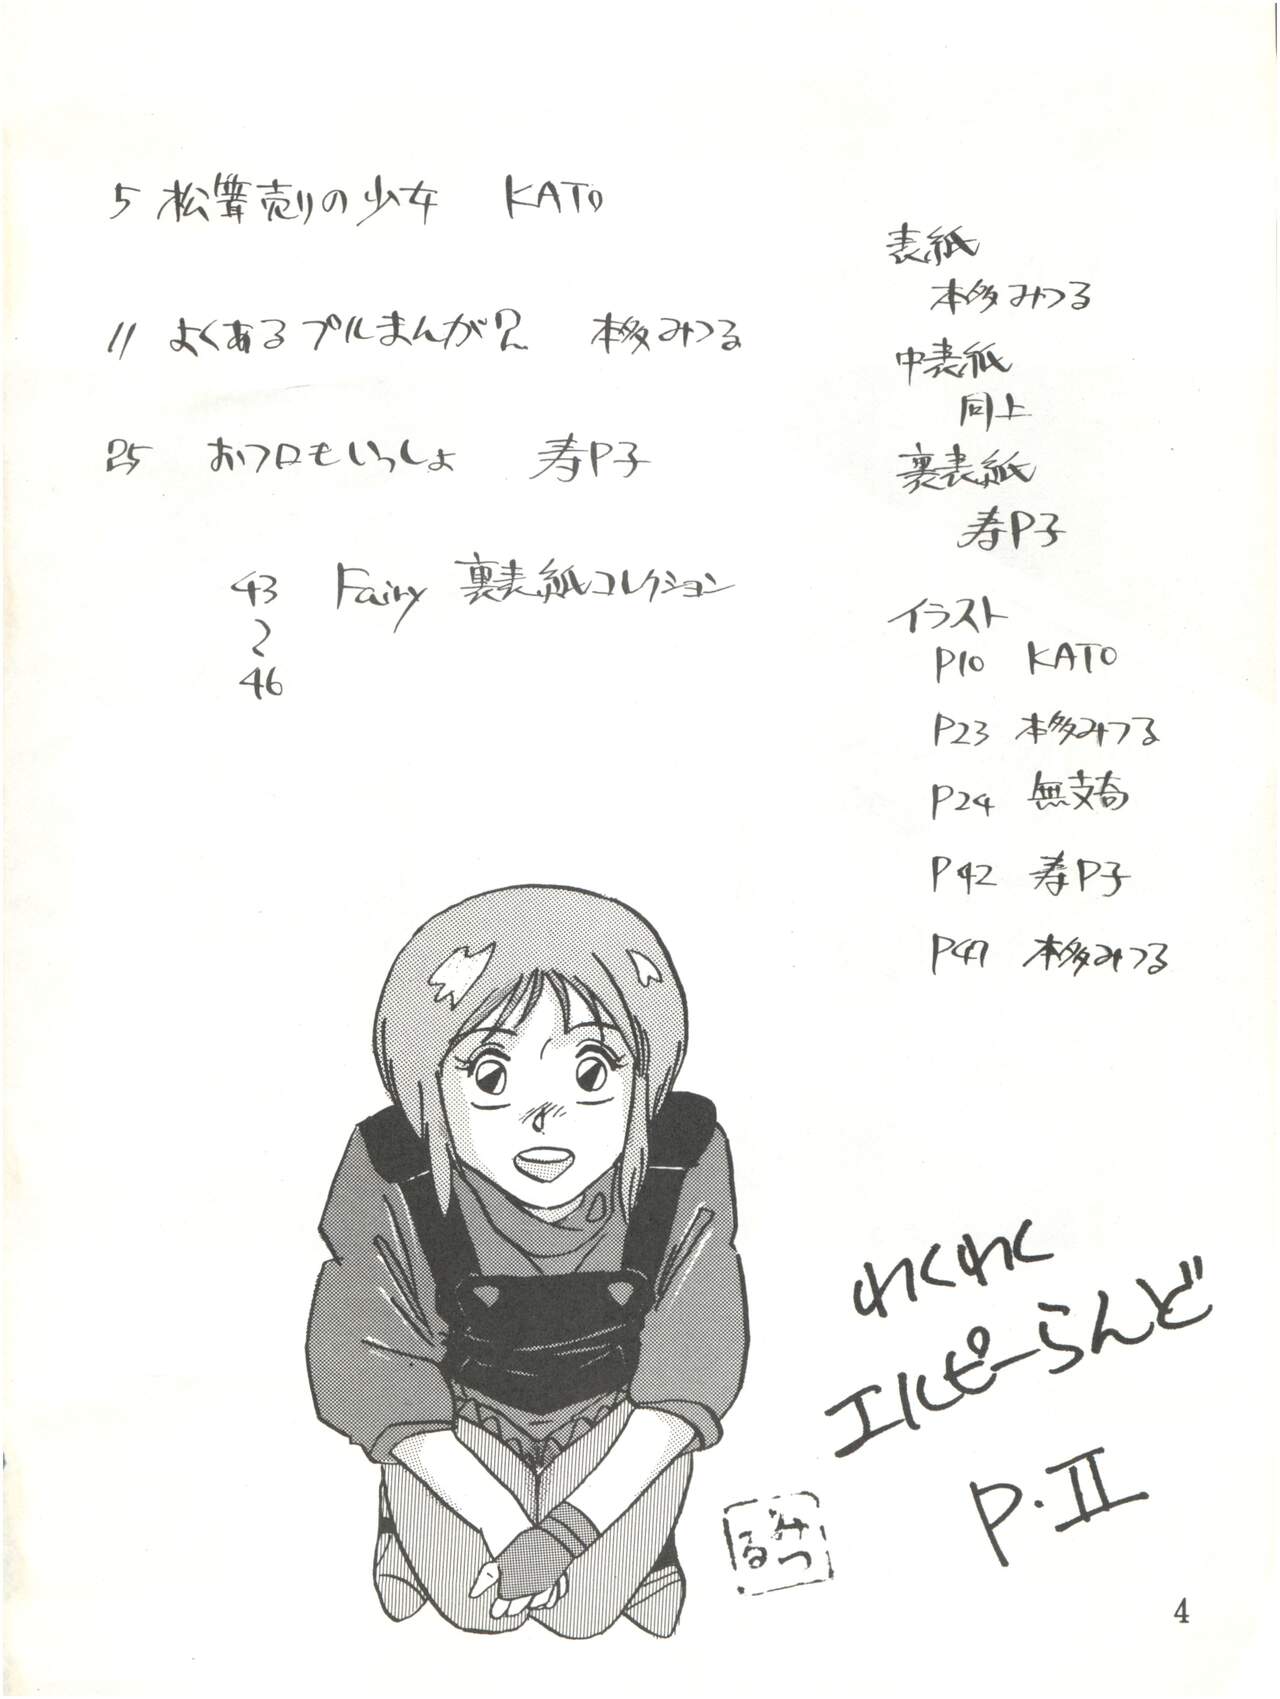 5 松茸売りの少女 KATO
11 よくあるプルまんが? 本多みつる
25 おフロもいっしょ 寿P子
43 Fairy 裏表紙コレクション
〜
46
表紙
本多みつる
中表紙
同上
裏表紙
寿P子
イラスト
P10 KATO
P23 本多みつる
P24 無支奇
P42 寿P子
P47 本多みつる
わくわく
エルピーらんど
P.II
みつる
4